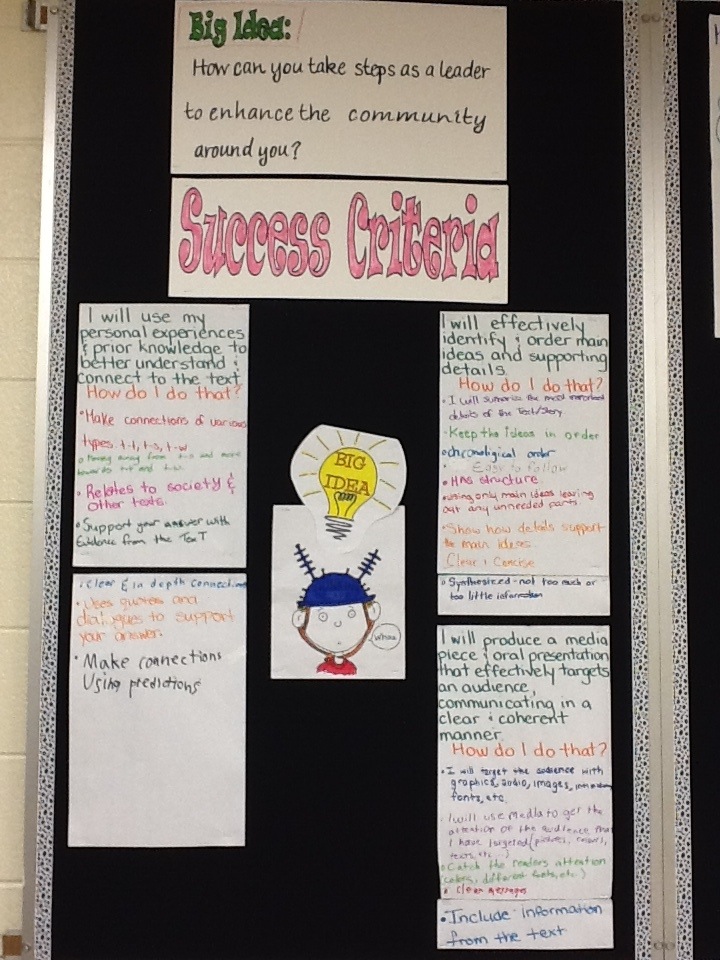 Big Idea:
How can you take steps as a leader
to enhance the community
around you?
Success Criteria
I will use my
personal experiences
& prior knowledge to
better understand &
connect to the text
How do I do that?
• Make connections of various
types t-t, t-s, t-w
• Moving away from t-s and more
towards t-t and t-w.
• Relates to society &
other texts.
• Support your answer with
Evidence from the Text
• Clear & in depth connections
• Uses quotes and
dialogues to support
your answer.
• Make connections
Using predictions
BIG
IDEA
Whoa
I will effectively
identify & order main
ideas and supporting
details.
How do I do that?
• I will the most important
details of the Text/Story
• Keep the ideas in order
• chronological order
Easy to follow
• Has structure
• using only main ideas leaving
out any unneeded parts.
• Show how details support
the main ideas.
Clear & Concise
• Synthesized - not too much or
too little information
I will produce a media
piece & oral presentation
that effectively targets
an audience,
communicating in a
clear & coherent
manner.
How do I do that?
• I will target the audience with
graphics, audio, images,
fonts, etc.
• I will use Media to get the
attention of the audience that
I have targeted (pictures, colours,
texts, etc.)
• Catch the readers attention
(colors, different fonts, etc)
• Clear messages
• Include information
from the text